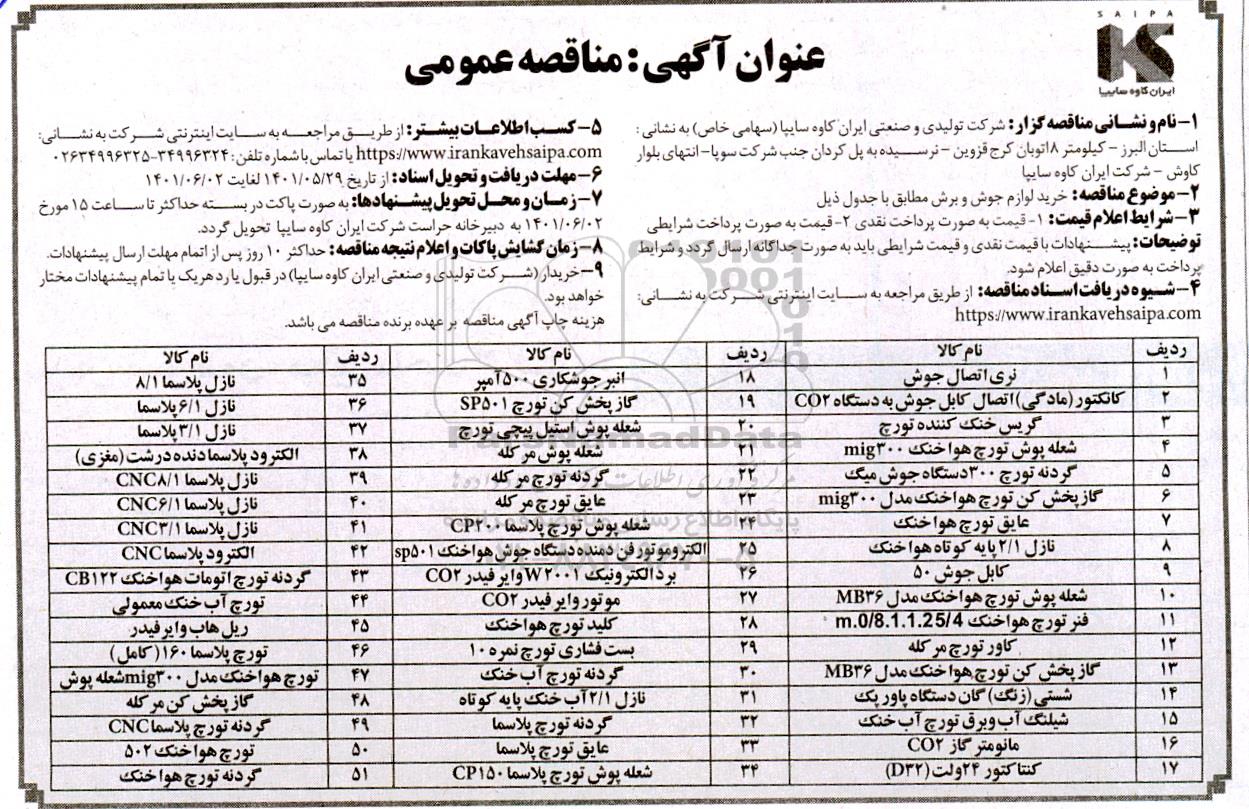 SAIPA
ایران کاوه سایپا
عنوان آگهی: مناقصه عمومی
۱- نام و نشانی مناقصه گزار: شرکت تولیدی و صنعتی ایران کاوه سایپا (سهامی خاص) به نشانی:
استان البرز - کیلومتر ۱۸اتوبان کرج قزوین - نرسیده به پل کردان جنب شرکت سوپا- انتهای بلوار
کاوش - شرکت ایران کاوه سایپا
۲- موضوع مناقصه: خرید لوازم جوش و برش مطابق با جدول ذیل
۳- شرایط اعلام قیمت: ۱- قیمت به صورت پرداخت نقدی ۲- قیمت به صورت پرداخت شرایطی
توضیحات: پیشنهادات با قیمت نقدی و قیمت شرایطی باید به صورت جداگانه ارسال گردد و شرایط
پرداخت به صورت دقیق اعلام شود.
۴- شیوه دریافت اسناد مناقصه: از طریق مراجعه به سایت اینترنتی شرکت به نشانی:
https://www.irankavehsaipa.com
۵- کسب اطلاعات بیشتر: از طریق مراجعه به سایت اینترنتی شرکت به نشانی:
https://www.irankavehsaipa.com یا تماس با شماره تلفن: ۳۴۹۹۶۳۲۴-۰۲۶۳۴۹۹۶۳۲۵
۶- مهلت دریافت و تحویل اسناد: از تاریخ ۱۴۰۱/۰۵/۲۹ لغایت ۱۴۰۱/۰۶/۰۲
۷- زمان و محل تحویل پیشنهادها: به صورت پاکت در بسته حداکثر تا ساعت ۱۵ مورخ
۱۴۰۱/۰۶/۰۲ به دبیرخانه حراست شرکت ایران کاوه سایپا تحویل گردد.
۸- زمان گشایش پاکات و اعلام نتیجه مناقصه: حداکثر ۱۰ روز پس از اتمام مهلت ارسال پیشنهادات.
۹- خریدار (شرکت تولیدی و صنعتی ایران کاوه سایپا) در قبول یا رد هر یک یا تمام پیشنهادات مختار
خواهد بود.
هزینه چاپ آگهی مناقصه بر عهده برنده مناقصه می باشد.
ردیف نام کالا ردیف نام کالا ردیف نام کالا
۱ نری اتصال جوش ۱۸ انبر جوشکاری ۵۰۰آمپر ۳۵ نازل پلاسما ۸/۱
۲ کانکتور (مادگی) اتصال کابل جوش به دستگاه CO۲ ۱۹ گاز پخش کن تورچ SP۵۰۱ ۳۶ نازل ۶/۱پلاسما
۳ گریس خنک کننده تورچ ۲۰ شعله پوش استیل پیچی تورچ ۳۷ نازل ۳/۱پلاسما
۴ شعله پوش تورچ هوا خنک mig۳۰۰ ۲۱ شعله پوش مر کله ۳۸ الکترود پلاسما دنده درشت (مغزی)
۵ گردنه تورچ ۳۰۰دستگاه جوش میگ ۲۲ گردنه تورچ مر کله ۳۹ نازل پلاسما CNC۸/۱
۶ گاز پخش کن تورچ هوا خنک مدل mig۳۰۰ ۲۳ عایق تورچ مر کله ۴۰ نازل پلاسما CNC۶/۱
۷ عایق تورچ هوا خنک ۲۴ شعله پوش تورچ پلاسما CP۲۰۰ ۴۱ نازل پلاسما CNC۳/۱
۸ نازل ۲/۱پایه کوتاه هوا خنک ۲۵ الکترو موتور فن دمنده دستگاه جوش هوا خنک sp۵۰۱ ۴۲ الکترود پلاسما CNC
۹ کابل جوش ۵۰ ۲۶ برد الکترونیک W۲۰۰۱وایر فیدر CO۲ ۴۳ گردنه تورچ اتومات هوا خنک CB۱۲۲
۱۰ شعله پوش تورچ هوا خنک مدل MB۳۶ ۲۷ موتور وایر فیدر CO۲ ۴۴ تورچ آب خنک معمولی
۱۱ فنر تورچ هوا خنک m.0/8.1.1.25/4 ۲۸ کلید تورچ هوا خنک ۴۵ ریل هاب وایر فیدر
۱۲ کاور تورچ مر کله ۲۹ بست فشاری تورچ نمره ۱۰ ۴۶ تورچ پلاسما ۱۶۰(کامل)
۱۳ گاز پخش کن تورچ هوا خنک مدل MB۳۶ ۳۰ گردنه تورچ آب خنک ۴۷ تورچ هوا خنک مدل mig۳۰۰شعله پوش
۱۴ شستی (زنگ) گان دستگاه پاور پک ۳۱ نازل ۲/۱آب خنک پایه کوتاه ۴۸ گاز پخش کن مر کله
۱۵ شیلنگ آب و برق تورچ آب خنک ۳۲ گردنه تورچ پلاسما ۴۹ گردنه تورچ پلاسما CNC
۱۶ مانومتر گاز CO۲ ۳۳ عایق تورچ پلاسما ۵۰ تورچ هوا خنک ۵۰۲
۱۷ کنتاکتور ۲۴ولت (D۳۲) ۳۴ شعله پوش تورچ پلاسما CP۱۵۰ ۵۱ گردنه تورچ هوا خنک